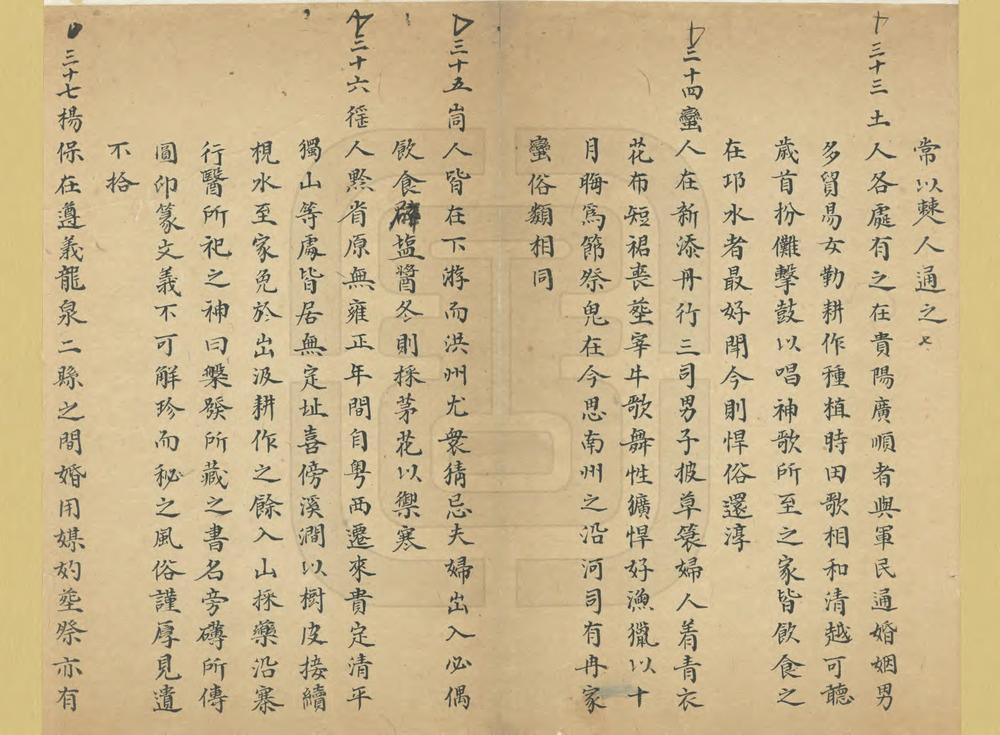 常以棘人通之
三十三土人各處有之在貴陽廣順者與軍民通婚姻男
多貿易女勤耕作種植時田歌相和清越可聽
歲首扮儺擊鼓以唱神歌所至之家皆飲食之
在邛水者最好鬥今則悍俗還淳
三十四蠻人在新添丹行三司男子披草簑婦人着青衣
花布短裙喪塟宰牛歌舞性獷悍好漁獵以十
月晦爲節祭鬼在今思南州之沿河司有冉家
蠻俗類相同
三十五峝人皆在下游而洪州尤衆猜忌夫婦出入必偶
飲食辟塩醬冬則採茅花以禦寒
三十六徭人黔省原無雍正年間自粤西遷來貴定清平
獨山等處皆居無定址喜傍溪澗以樹皮接續
梘水至家免於出汲耕作之餘入山採藥沿寨
行醫所祀之神曰槃發所藏之書名旁礴所傳
圓印篆文義不可解珍而秘之風俗謹厚見遺
不拾
三十七楊保在遵義龍泉二縣之間婚用媒妁塟祭亦有